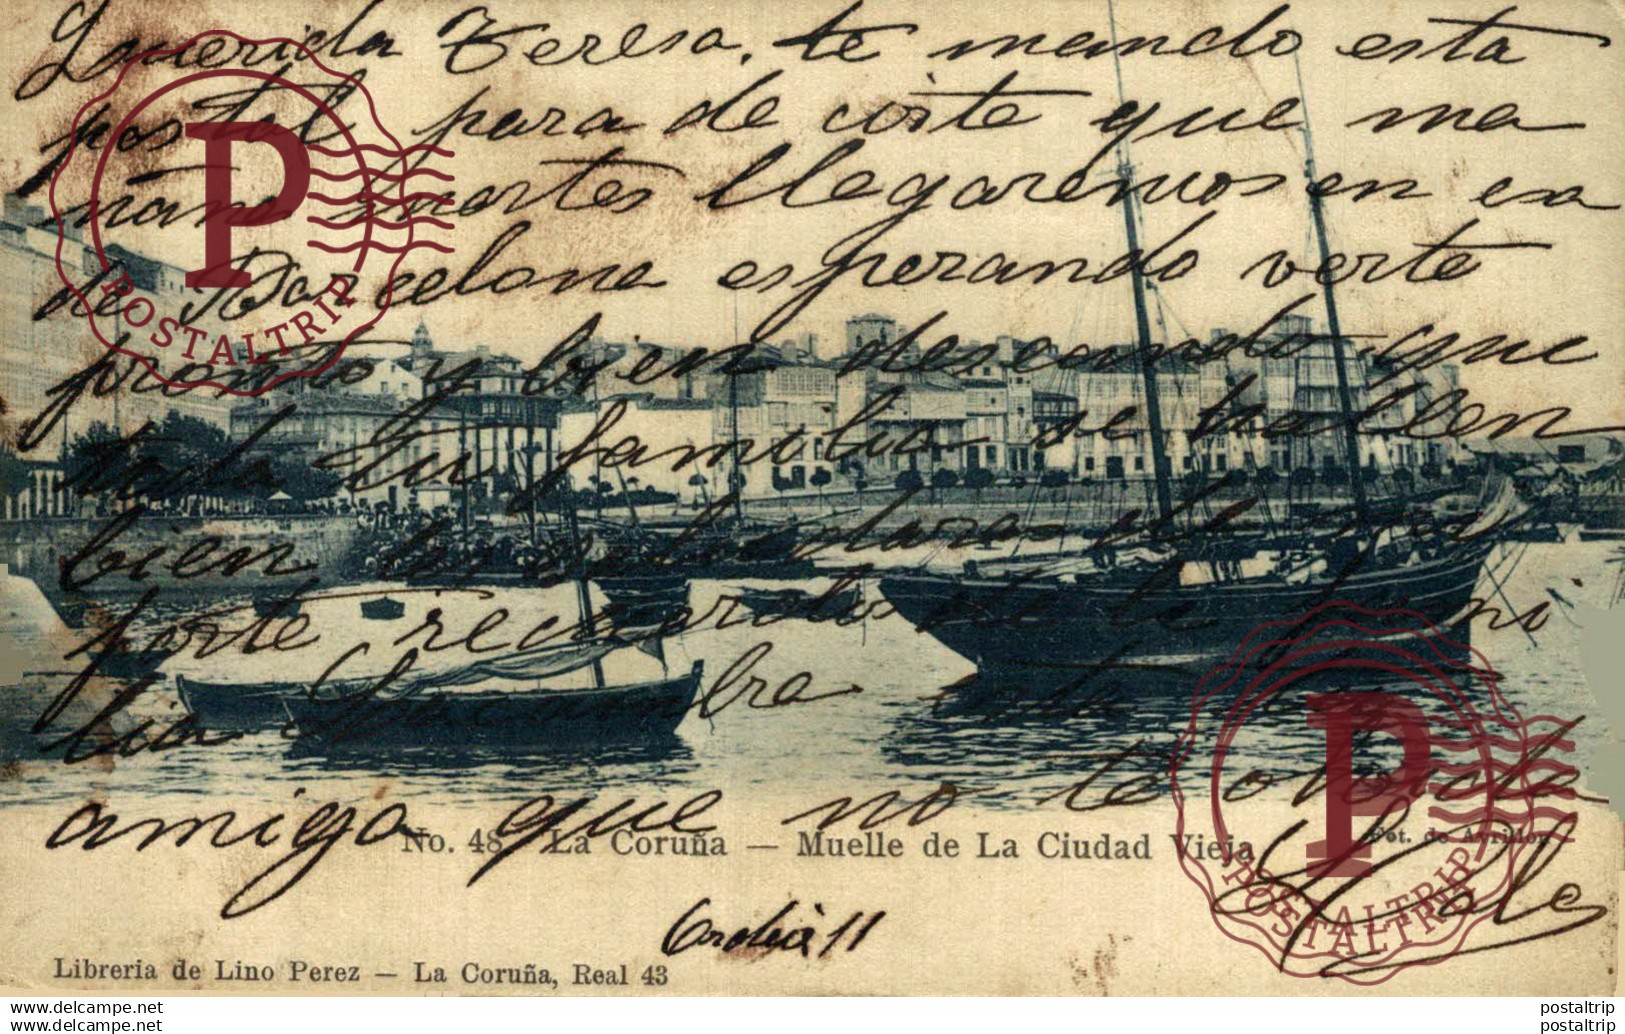 Querida Teresa, te mando esta
postal para de cirte que ma
ñana martes llegaremos en esa
de Barcelona esperando verte
pronto y bien deseando que
toda tu familia se hallen
bien
forte recuerdos de la fami
lia
amiga que no te olvida
No. 48 La Coruña — Muelle de La Ciudad Vieja
Fot. de Avrillon
Libreria de Lino Perez — La Coruña, Real 43
P
POSTALTRIP
P
POSTALTRIP
www.delcampe.net
www.delcampe.net
postaltrip
postaltrip